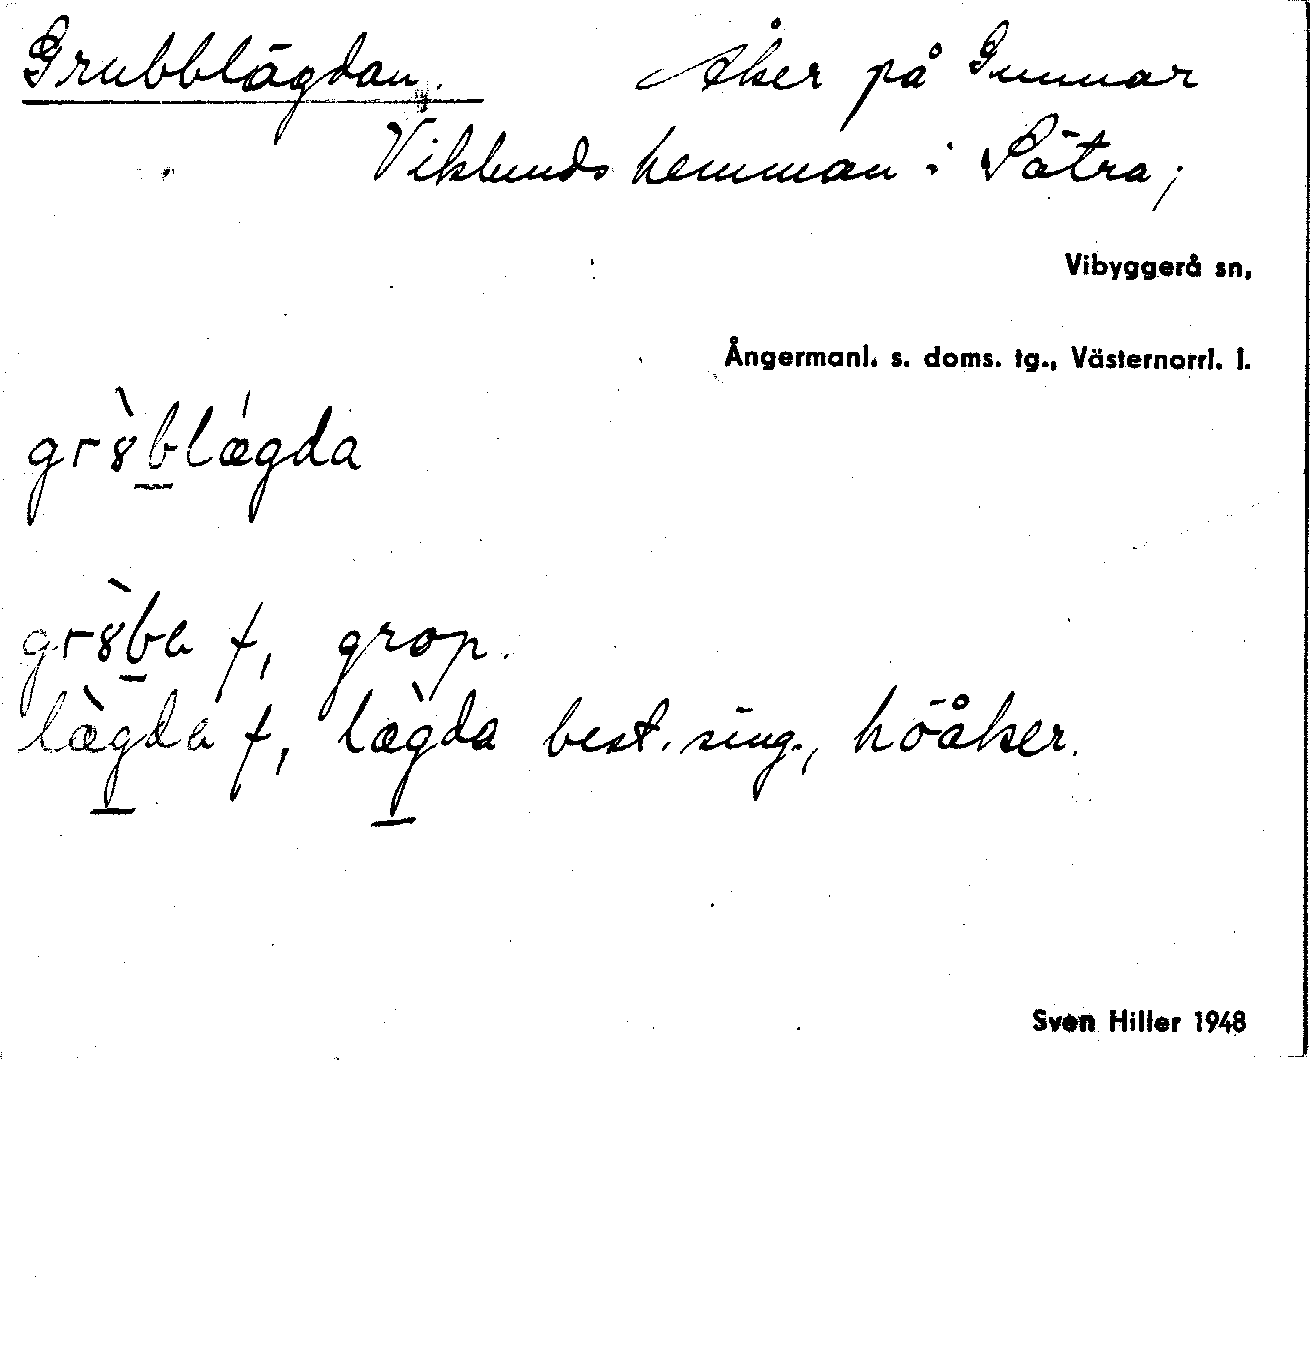 Grubblägdan. Åker på Gunnar
Viklunds hemman i Sätra;
Vibyggerå sn,
Ångermanl. s. doms. tg., Västernorrl. l.
gr8̀blǽgda
gr8̀ba f, grop.
læ̀gda f, læ̀gda best. sing., höåker.
Sven Hiller 1948